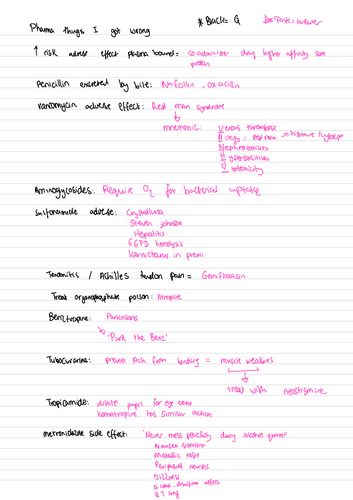 Pharma things I got wrong
* Black = Q
Pink = answer
↑ risk adverse effect plasma bound = co administer drug higher affinity same
protein
Penicillin excreted by bile: Nafcillin, oxacillin
Vancomycin adverse effect: Red man syndrome
mnemonic: Venous thrombosis
Allergy = Red man → histamine /
Nephrotoxicity
Ototoxicity
Aminoglycosides: Require O2 for bacterial uptake
Sulfonamide adverse: Crystalluria
Steven Johnson
Hepatitis
G6PD hemolysis
Kernicterus in premi
Tendonitis / Achilles tendon pain = Gemifloxacin
Treat organophosphate poison: Atropine
Benztropine: Parkinsons
"Park the Benz"
Tubocurarine: prevent Ach from binding = muscle weakness
treat with neostigmine
Tropicamide: dilate pupil for eye exam
homatropine has similar action
metronidazole side effect: "Never mess peacefully during alcohol
Nausea / vomiting
Metallic taste
Peripheral neuro
Dizziness
disulfiram effect
QT long